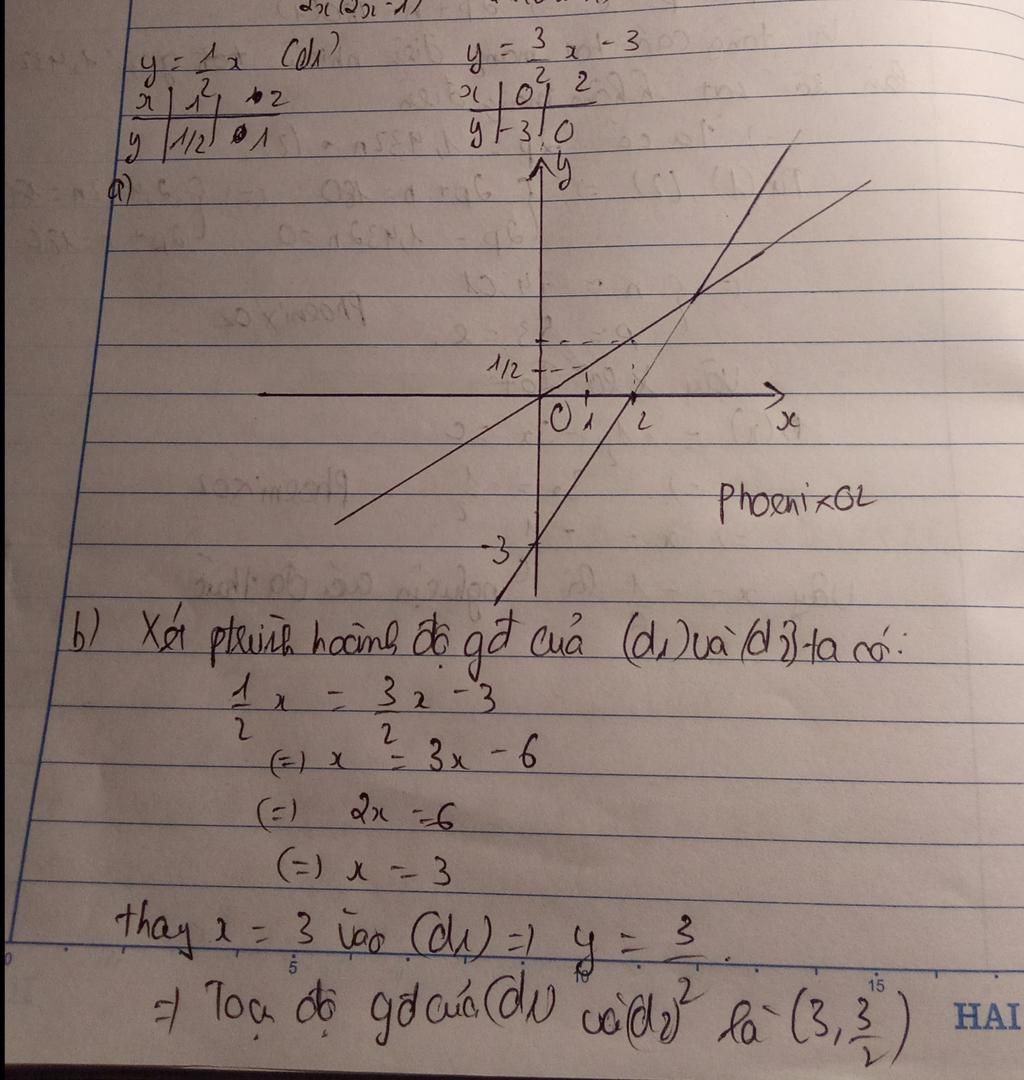 2x(2x-1)
y = 1/2 x (d1) y = 3/2 x - 3
x | 1 | 2 x | 0 | 2
y | 1/2 | 1 y | -3 | 0
a)
y
1/2
0 1 2 x
Phoenix02
-3
b) Xét ptrình hoành độ gđ của (d1) và (d2) ta có:
1/2 x = 3/2 x - 3
(=) x = 3x - 6
(=) 2x = 6
(=) x = 3
thay x = 3 vào (d1) =) y = 3/2.
0 5 10 15
=) Toạ độ gđ của (d1) và (d2) là (3, 3/2)
HAI